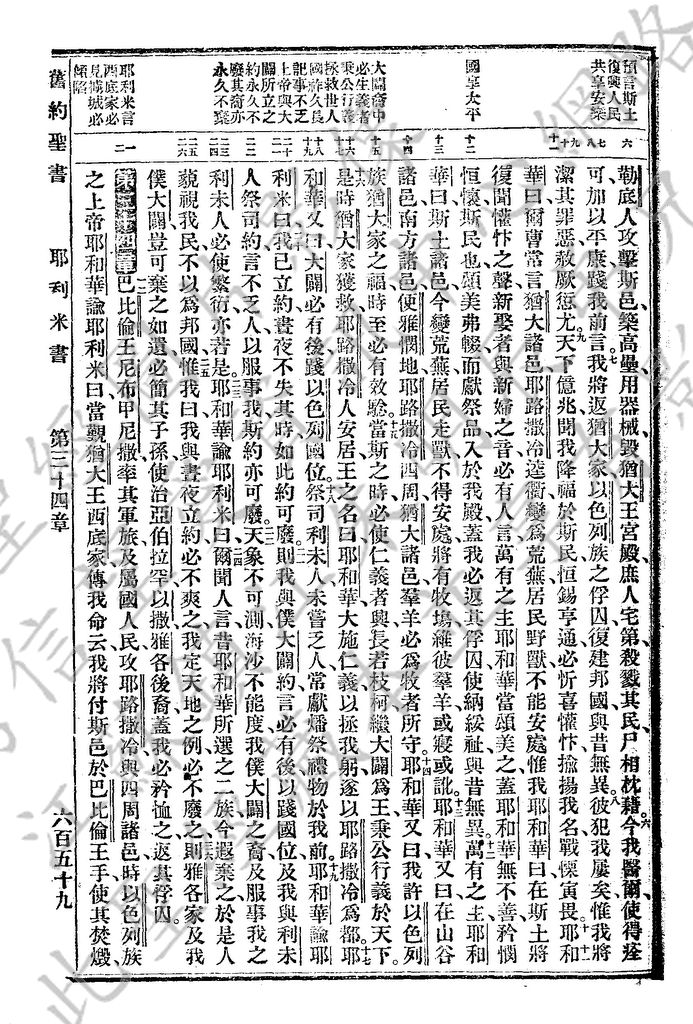 預言斯土
復興人民
共享安樂
國享太平
大闢裔中
必生義者
秉公行義
拯救世人
國祚久長
祀事不乏
上帝與大
闢所立之
約永久不
廢其裔亦
永久不棄
耶利米言
西底家必
見執城必
傾陷
六
七
八
九
十
十一
十二
十三
十四
十五
十六
十七
十八
十九
二十
二一
二二
二三
二四
二五
二六
一
二
勒底人攻擊斯邑築高壘用器械毀猶大王宮殿庶人宅第殺戮其民尸相枕藉今我醫爾使得痊
可加以平康踐我前言我將返猶大家以色列族之俘囚復建邦國與昔無異彼犯我屢矣惟我將
潔其罪惡赦厥愆尤天下億兆聞我降福於斯民恒錫亨通必忻喜懽忭揄揚我名戰慄寅畏耶和
華曰爾曹當言猶大諸邑耶路撒冷逵衢變爲荒蕪居民野獸不能安處惟我耶和華曰在斯土將
復聞懽忭之聲新娶者與新婦之音必有人言萬有之主耶和華當頌美之蓋耶和華無不善矜憫
恒懷斯民也頌美弗輟而獻祭品入於我殿蓋我必返其俘囚使納綏祉與昔無異萬有之主耶和
華曰斯土諸邑今變荒蕪居民走獸不得安處將有牧塲維彼羣羊或寢或訛耶和華又曰在山谷
諸邑南方諸邑便雅憫地耶路撒冷四周猶大諸邑羣羊必爲牧者所守耶和華又曰我許以色列
族猶大家之福時至必有效騐當斯之時必使仁義者興長若枝柯繼大闢爲王秉公行義於天下
是時猶大家獲救耶路撒冷人安居王之名曰耶和華大施仁義以拯我躬遂以耶路撒冷爲都耶
和華又曰大闢必有後踐以色列國位祭司利未人未嘗乏人常獻燔祭禮物於我前耶和華諭耶
利米曰我已立約晝夜不失其時如此約可廢則我與僕大闢約言必有後以踐國位及我與利未
人祭司約言不乏人以服事我斯約亦可廢天象不可測海沙不能度我僕大闢之裔及服事我之
利未人必使繁衍亦若是耶和華諭耶利米曰爾聞人言昔耶和華所選之二族今遐棄之於是人
藐視我民不以爲邦國惟我曰我與晝夜立約必不爽之我定天地之例必不廢之則雅各家及我
僕大闢豈可棄之如遺必簡其子孫使治亞伯拉罕以撒雅各後裔蓋我必矜恤之返其俘囚
第三十四章巴比倫王尼布甲尼撒率其軍旅及屬國人民攻耶路撒冷與四周諸邑時以色列族
之上帝耶和華諭耶利米曰當覲猶大王西底家傳我命云我將付斯邑於巴比倫王手使其焚燬
舊約聖書 耶利米書 第三十四章 六百五十九